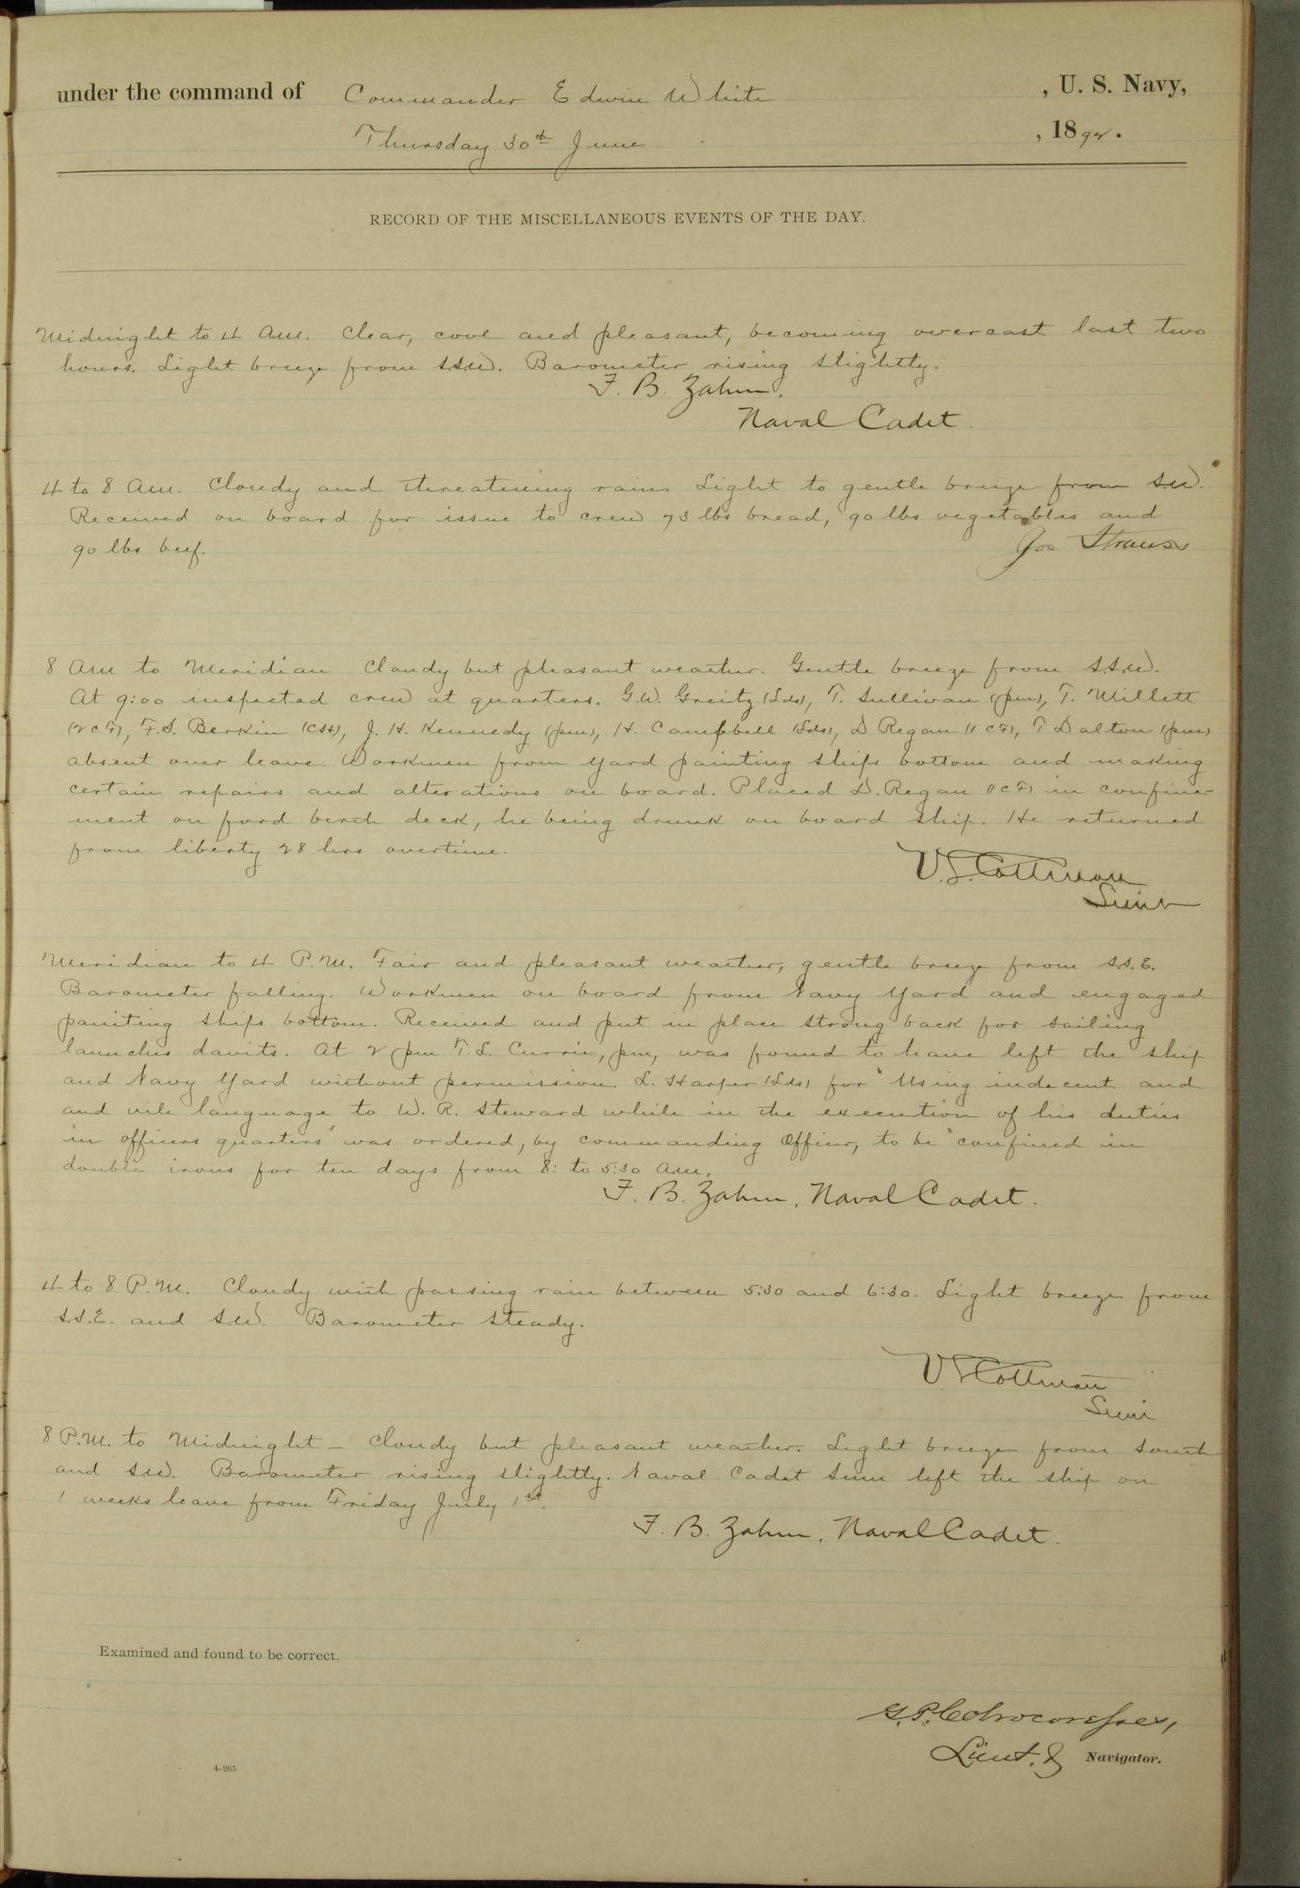 under the command of Commander Edwin White , U. S. Navy,
Thursday 30th June , 1892.
RECORD OF THE MISCELLANEOUS EVENTS OF THE DAY.
Midnight to 4 A.M. Clear, cool and pleasant, becoming overcast last two
hours. Light breeze from S.S.W. Barometer rising slightly.
F. B. Zahm.
Naval Cadet.
4 to 8 A.M. Cloudy and threatening rain. Light to gentle breeze from S.W.
Received on board for issue to crew 73 lbs bread, 90 lbs vegetables and
90 lbs beef. Jos Strauss
8 AM to Meridian Cloudy but pleasant weather. Gentle breeze from S.S.W.
At 9:00 inspected crew at quarters. G.W. Greitz (Lds), T. Sullivan (pm), T. Millett
(2 CF), F.S. Berkin (CSH), J. H. Kennedy (pm), H. Campbell (Lds), D Regan (1 CF), T Dalton (pm)
absent over leave. Workmen from yard painting ships bottom and making
certain repairs and alterations on board. Placed D. Regan (1 CF) in confine-
ment on ford berth deck, he being drunk on board ship. He returned
from liberty 28 hrs overtime.
V. S. Cottman
Lieut
Meridian to 4 P.M. Fair and pleasant weather, gentle breeze from S.S.E.
Barometer falling. Workmen on board from Navy Yard and engaged
painting ships bottom. Received and put in place strong back for sailing
launches davits. At 2 pm T. L. Currie, pm, was found to have left the ship
and Navy Yard without permission. L. Harper (Lds) for "Using indecent and
and vile language to W. R. Steward while in the execution of his duties
in officers quarters" was ordered, by commanding Officer, to be "confined in
double irons for ten days from 8: to 5:30 A.M.
F. B. Zahm, Naval Cadet.
4 to 8 P.M. Cloudy with passing rain between 5:30 and 6:30. Light breeze from
S.S.E. and S.W. Barometer steady.
V S Cottman
Lieut
8 P.M. to Midnight – Cloudy but pleasant weather. Light breeze from South
and S.W. Barometer rising slightly. Naval Cadet left the ship on
1 weeks leave from Friday July 1st.
F. B. Zahm, Naval Cadet.
Examined and found to be correct.
G. P. Colvocoresses,
Lieut. & Navigator.
4–265